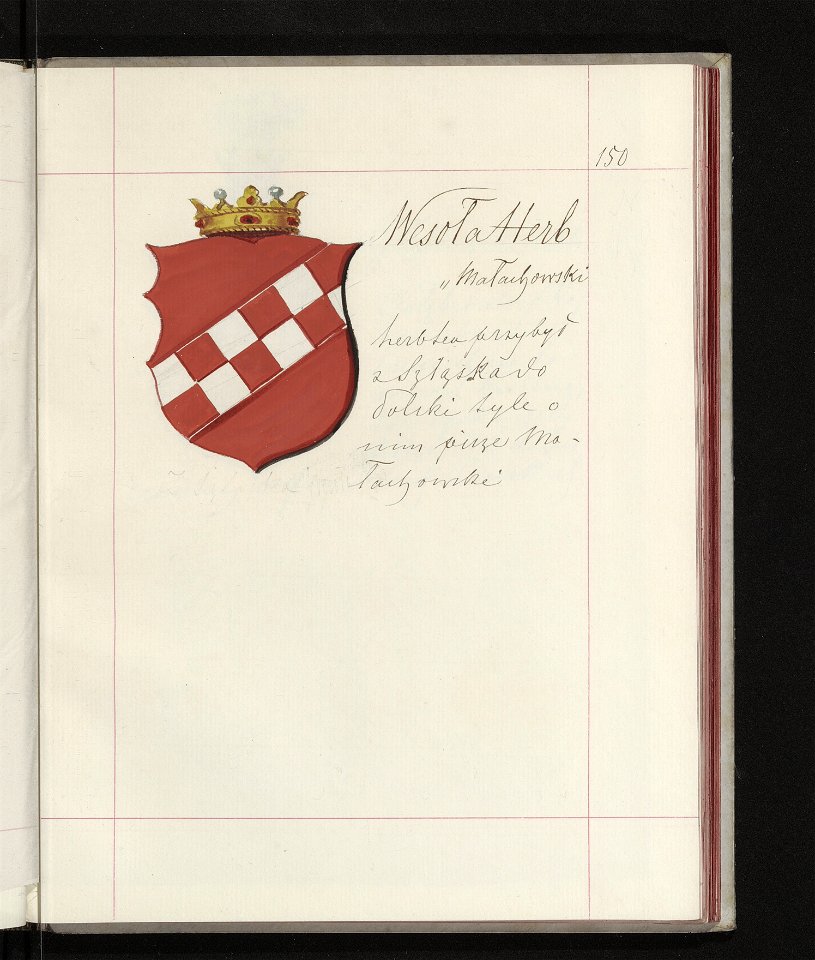 150
Wesoła Herb
„Małachowski
herb ten przybył
z Szląska do
Polski tyle o
nim pisze Ma-
łachowski